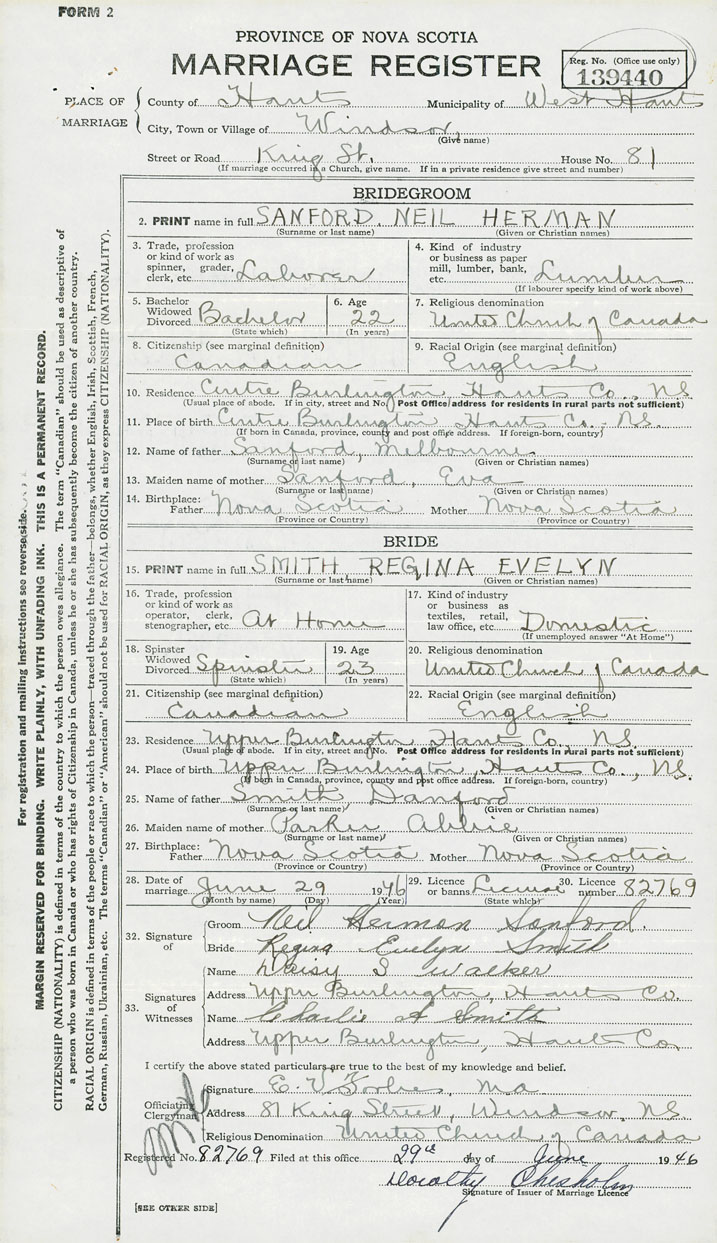 FORM 2
PROVINCE OF NOVA SCOTIA
MARRIAGE REGISTER
Reg. No. (Office use only)
139440
PLACE OF MARRIAGE
County of Hants Municipality of West Hants
City, Town or Village of Windsor
(Give name)
Street or Road King St. House No. 81
(If marriage occurred in a Church, give name. If in a private residence give street and number)
BRIDEGROOM
2. PRINT name in full SANFORD, NEIL HERMAN
(Surname or last name) (Given or Christian names)
3. Trade, profession or kind of work as spinner, grader, clerk, etc. Laborer
4. Kind of industry or business as paper mill, lumber, bank, etc. Lumber
(If labourer specify kind of work above)
5. Bachelor Widowed Divorced Bachelor
(State which)
6. Age 22
(In years)
7. Religious denomination
United Church of Canada
8. Citizenship (see marginal definition)
Canadian
9. Racial Origin (see marginal definition)
English
10. Residence Centre Burlington Hants Co., NS
(Usual place of abode. If in city, street and No. Post Office address for residents in rural parts not sufficient)
11. Place of birth Centre Burlington Hants Co., NS.
(If born in Canada, province, county and post office address. If foreign-born, country)
12. Name of father Sanford, Melbourne
(Surname or last name) (Given or Christian names)
13. Maiden name of mother Sanford, Eva
(Surname or last name) (Given or Christian names)
14. Birthplace: Father Nova Scotia Mother Nova Scotia
(Province or Country) (Province or Country)
BRIDE
15. PRINT name in full SMITH, REGINA EVELYN
(Surname or last name) (Given or Christian names)
16. Trade, profession or kind of work as operator, clerk, stenographer, etc. At Home
17. Kind of industry or business as textiles, retail, law office, etc. Domestic
(If unemployed answer "At Home")
18. Spinster Widowed Divorced Spinster
(State which)
19. Age 23
(In years)
20. Religious denomination
United Church of Canada
21. Citizenship (see marginal definition)
Canadian
22. Racial Origin (see marginal definition)
English
23. Residence Upper Burlington Hants Co., NS.
(Usual place of abode. If in city, street and No. Post Office address for residents in rural parts not sufficient)
24. Place of birth Upper Burlington, Hants Co., NS.
(If born in Canada, province, county and post office address. If foreign-born, country)
25. Name of father Smith Danford
(Surname or last name) (Given or Christian names)
26. Maiden name of mother Parker Abbie
(Surname or last name) (Given or Christian names)
27. Birthplace: Father Nova Scotia Mother Nova Scotia
(Province or Country) (Province or Country)
28. Date of marriage June 29 1946
(Month by name) (Day) (Year)
29. Licence or banns License
(State which)
30. Licence number 82769
32. Signature of
Groom Neil Herman Sanford.
Bride Regina Evelyn Smith
33. Signatures of Witnesses
Name Daisy S Walker
Address Upper Burlington, Hants Co.
Name Charlie A Smith
Address Upper Burlington, Hants Co.
I certify the above stated particulars are true to the best of my knowledge and belief.
Officiating Clergyman
Signature E. V. Forbes, MA
Address 81 King Street, Windsor, NS
Religious Denomination United Church of Canada
Registered No. 82769 Filed at this office 29th day of June 1946
Dorothy Chesholm
Signature of Issuer of Marriage Licence
[SEE OTHER SIDE]
For registration and mailing instructions see reverse side.
MARGIN RESERVED FOR BINDING. WRITE PLAINLY, WITH UNFADING INK. THIS IS A PERMANENT RECORD.
CITIZENSHIP (NATIONALITY) is defined in terms of the country to which the person owes allegiance. The term "Canadian" should be used as descriptive of
a person who was born in Canada or who has rights of Citizenship in Canada, unless he or she has subsequently become the citizen of another country.
RACIAL ORIGIN is defined in terms of the people or race to which the person—traced through the father—belongs, whether English, Irish, Scottish, French,
German, Russian, Ukrainian, etc. The terms "Canadian" or "American" should not be used for RACIAL ORIGIN, as they express CITIZENSHIP (NATIONALITY).